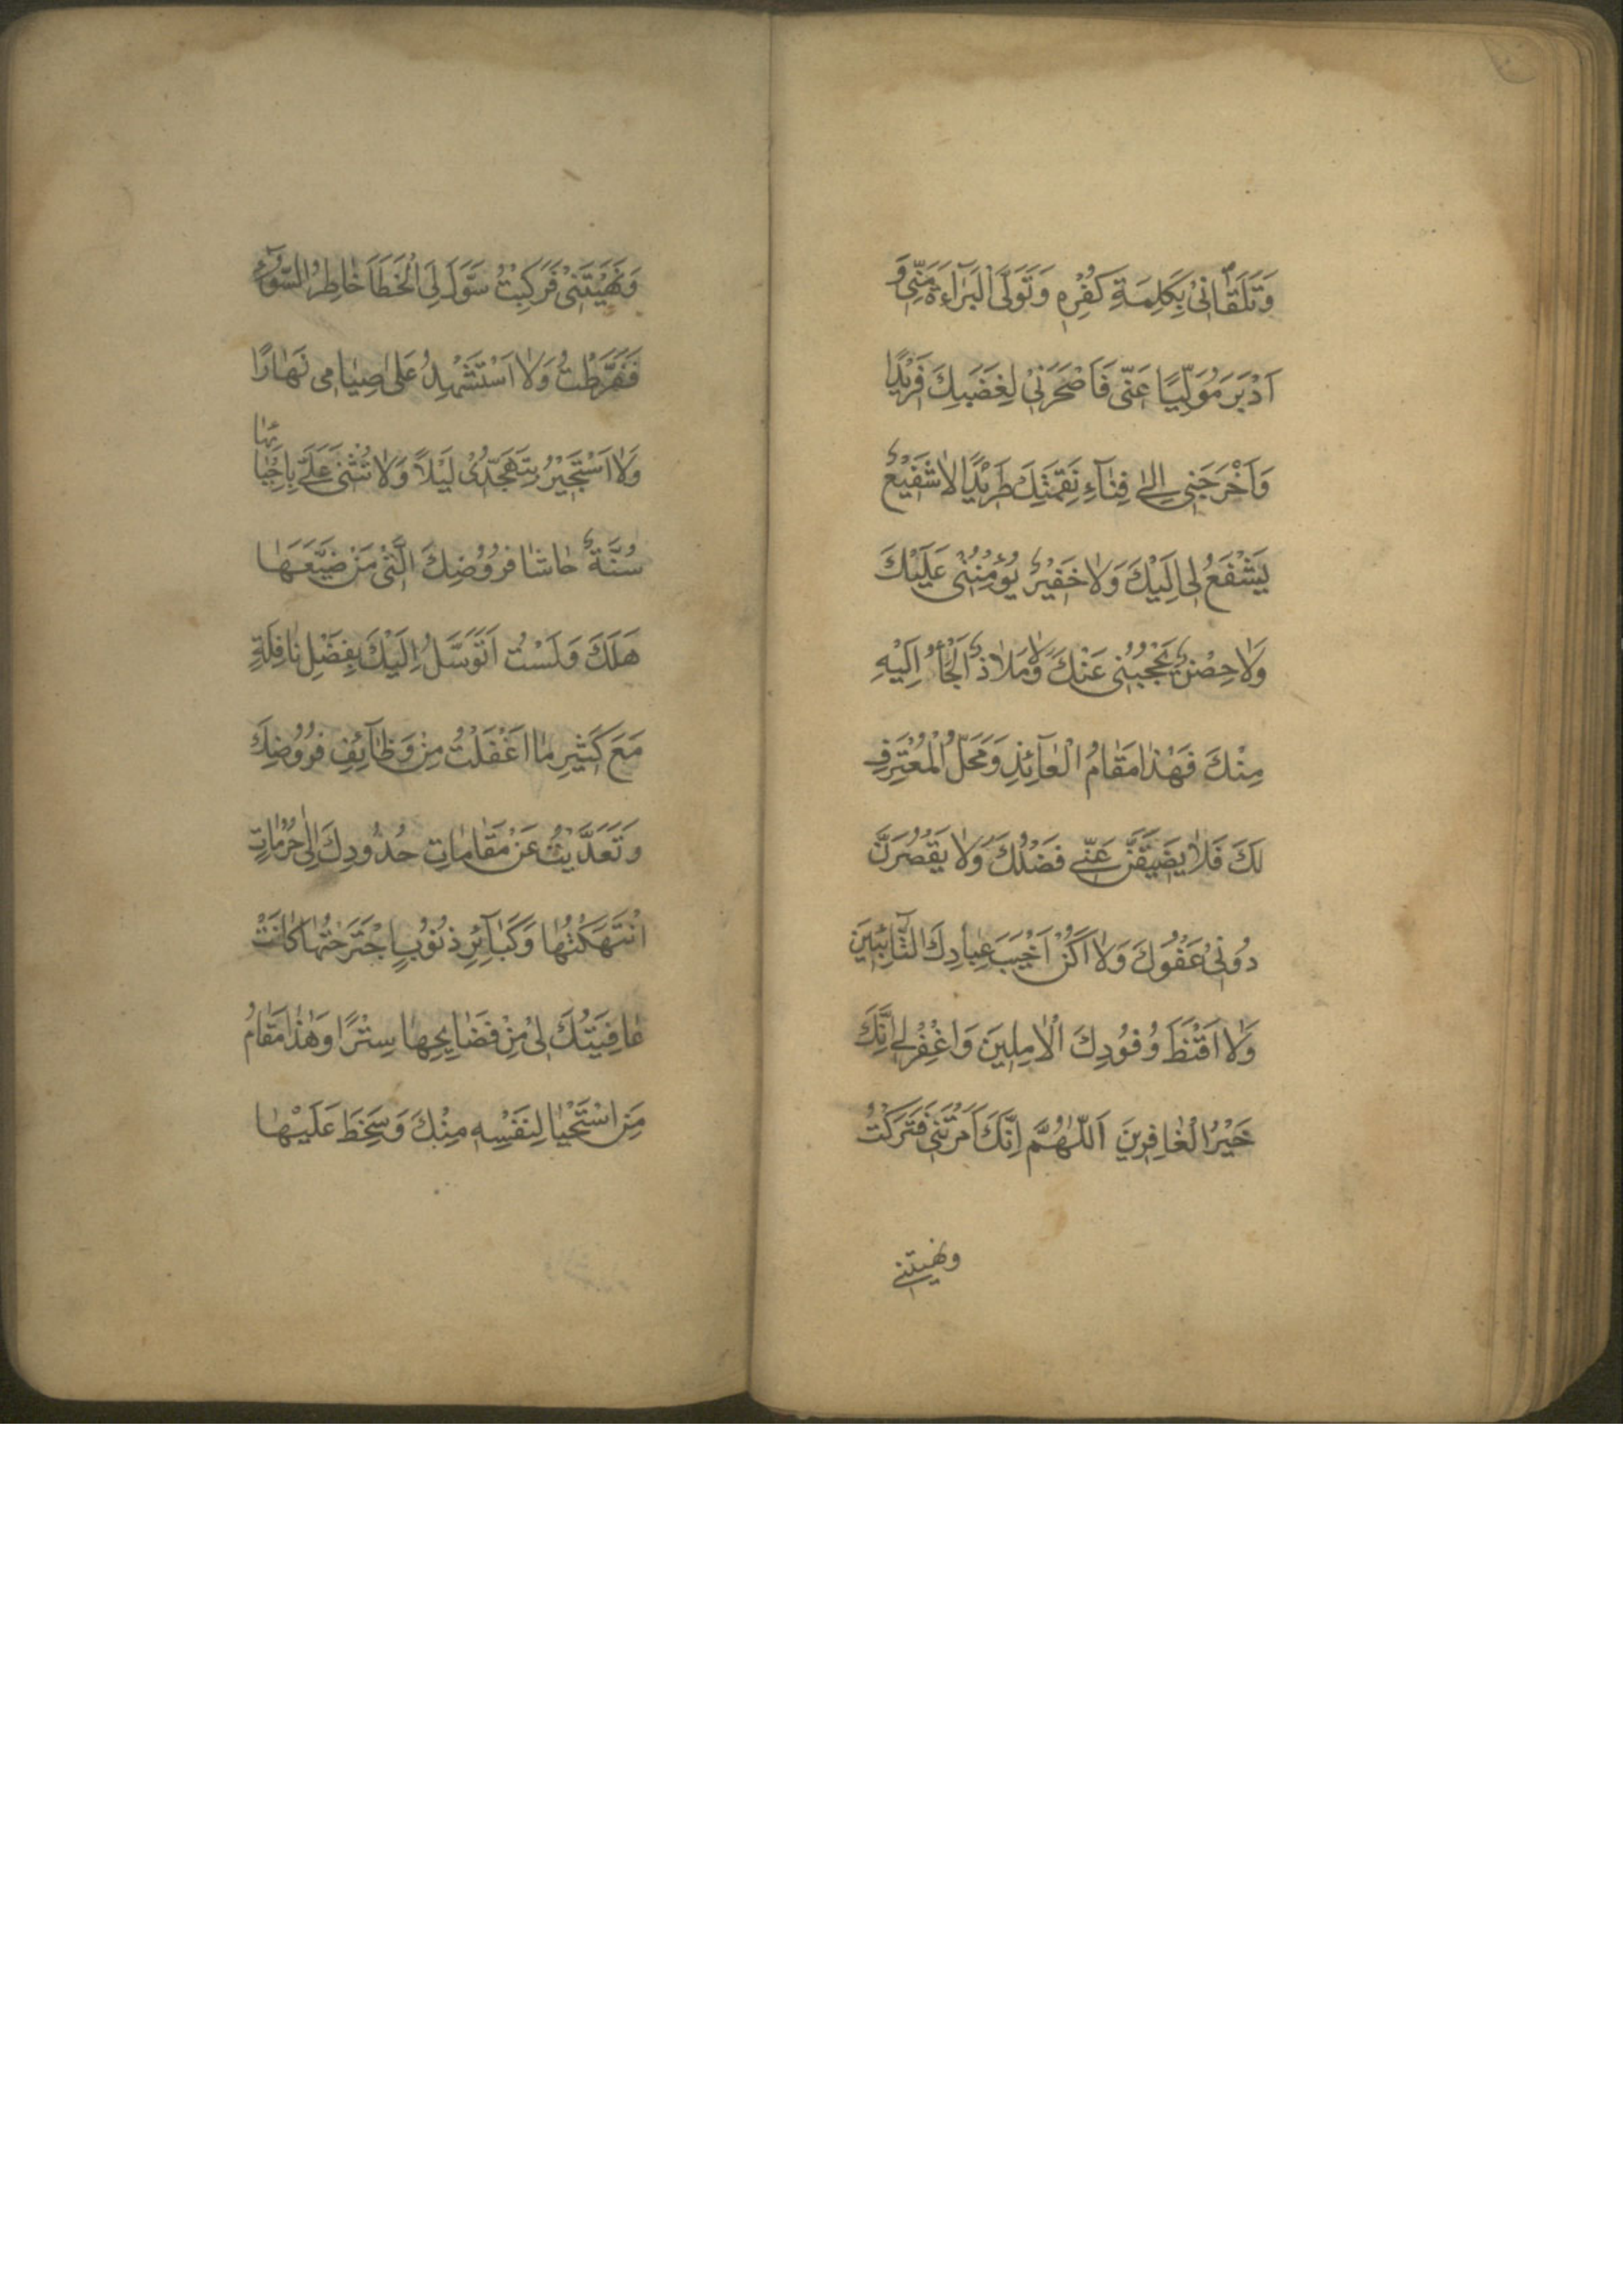 وَتَلَقّٰانىٖ بِكَلِمَةِ كُفْرِهِ وَتَوَلَّى الْبَرٰاءَةَ مِنّىٖ وَ
اَدْبَرَ مُوَلِّيًا عَنّىٖ فَاَصْحَرَنىٖ لِغَضَبِكَ فَرٖيْدًا
وَاَخْرَجَنىٖ اِلىٰ فِنٰآءِ نَقِمَتِكَ طَرٖيْدًا لٰا شَفٖيْعٌ
يَشْفَعُ لىٖ اِلَيْكَ وَلٰا خَفٖيْرٌ يُؤْمِنُنىٖ عَلَيْكَ
وَلٰا حِصْنٌ يَحْجُبُنىٖ عَنْكَ وَلٰا مَلٰاذٌ اَلْجَأُ اِلَيْهِ
مِنْكَ فَهٰذٰا مَقٰامُ الْعٰآئِذِ وَمَحَلُّ الْمُعْتَرِفِ
لَكَ فَلٰا يَضٖيْقَنَّ عَنّىٖ فَضْلُكَ وَلٰا يَقْصُرَنَّ
دُوْنىٖ عَفْوُكَ وَلٰا اَكُنْ اَخْيَبَ عِبٰادِكَ التّٰآئِبٖينَ
وَلٰا اَقْنَطَ وُفُوْدِكَ الْاٰمِلٖينَ وَاغْفِرْ لىٖ اِنَّكَ
خَيْرُ الْغٰافِرٖينَ اَللّٰهُمَّ اِنَّكَ اَمَرْتَنىٖ فَتَرَكْتُ
ونهيتنى
وَنَهَيْتَنىٖ فَرَكِبْتُ وَسَوَّلَ لِىَ الْخَطَآءَ خٰاطِرُ السُّوْٓءِ
فَفَرَّطْتُ وَلٰا اَسْتَشْهِدُ عَلىٰ صِيٰامىٖ نَهٰارًا
وَلٰا اَسْتَجٖيْرُ بِتَهَجُّدىٖ لَيْلًا وَلٰا تُثْنىٖ عَلَىَّ بِاِحْيٰا
ئها
سُنَّةٌ حٰاشٰا فُرُوْضِكَ الَّتىٖ مَنْ ضَيَّعَهٰا
هَلَكَ وَلَسْتُ اَتَوَسَّلُ اِلَيْكَ بِفَضْلِ نٰافِلَةٍ
مَعَ كَثٖيْرِ مٰا اَغْفَلْتُ مِنْ وَظٰآئِفِ فُرُوْضِكَ
وَتَعَدَّيْتُ عَنْ مَقٰامٰاتِ حُدُوْدِكَ اِلىٰ حُرُمٰاتٍ
انْتَهَكْتُهٰا وَكَبٰآئِرِ ذُنُوْبٍ اجْتَرَحْتُهٰا كٰانَتْ
عٰافِيَتُكَ لىٖ مِنْ فَضٰايِحِهٰا سِتْرًا وَهٰذٰا مَقٰامُ
مَنِ اسْتَحْيٰا لِنَفْسِهٖ مِنْكَ وَسَخِطَ عَلَيْهٰا